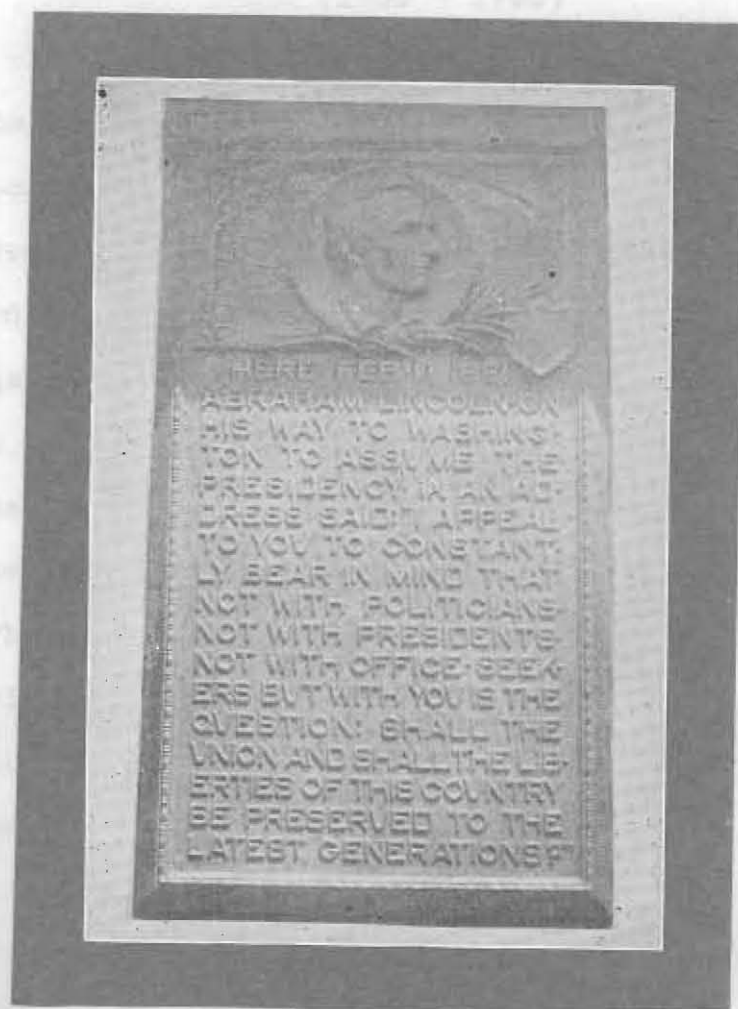 HERE FEB 11 1861
ABRAHAM LINCOLN·ON
HIS WAY TO WASHING-
TON TO ASSVME THE
PRESIDENCY·IN AN AD-
DRESS SAID:"I APPEAL
TO YOV TO CONSTANT-
LY BEAR IN MIND THAT
NOT WITH POLITICIANS·
NOT WITH PRESIDENTS·
NOT WITH OFFICE·SEEK-
ERS BVT WITH YOV IS THE
QVESTION: SHALL THE
VNION AND SHALL THE LIB-
ERTIES OF THIS COVNTRY
BE PRESERVED TO THE
LATEST GENERATIONS?"